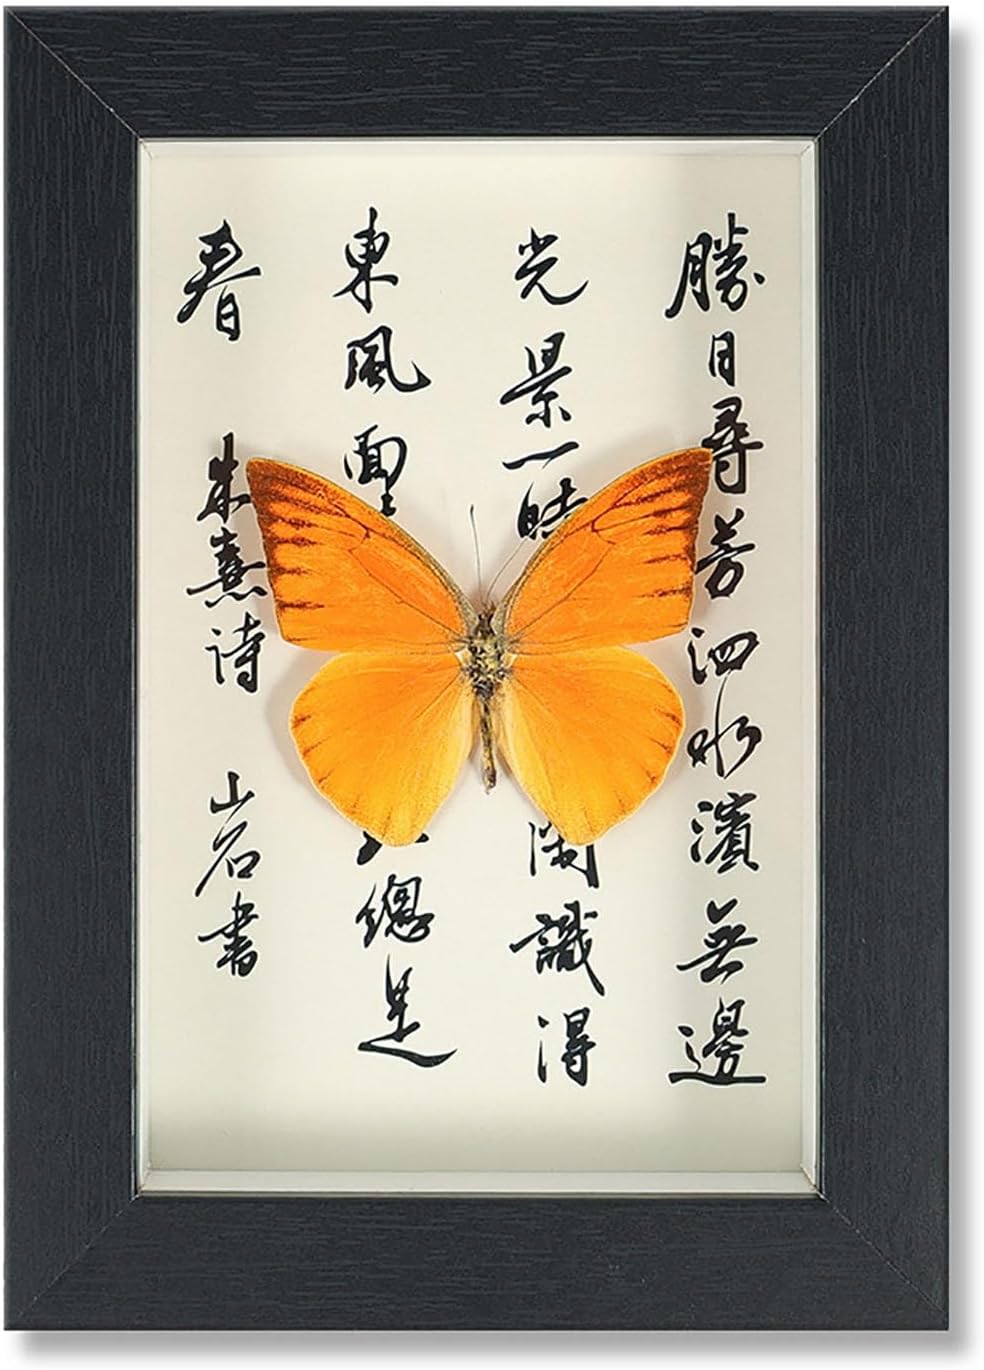 勝日尋芳泗水濱無邊
光景一時閒識得
東風面總是
春 朱熹诗 山石書